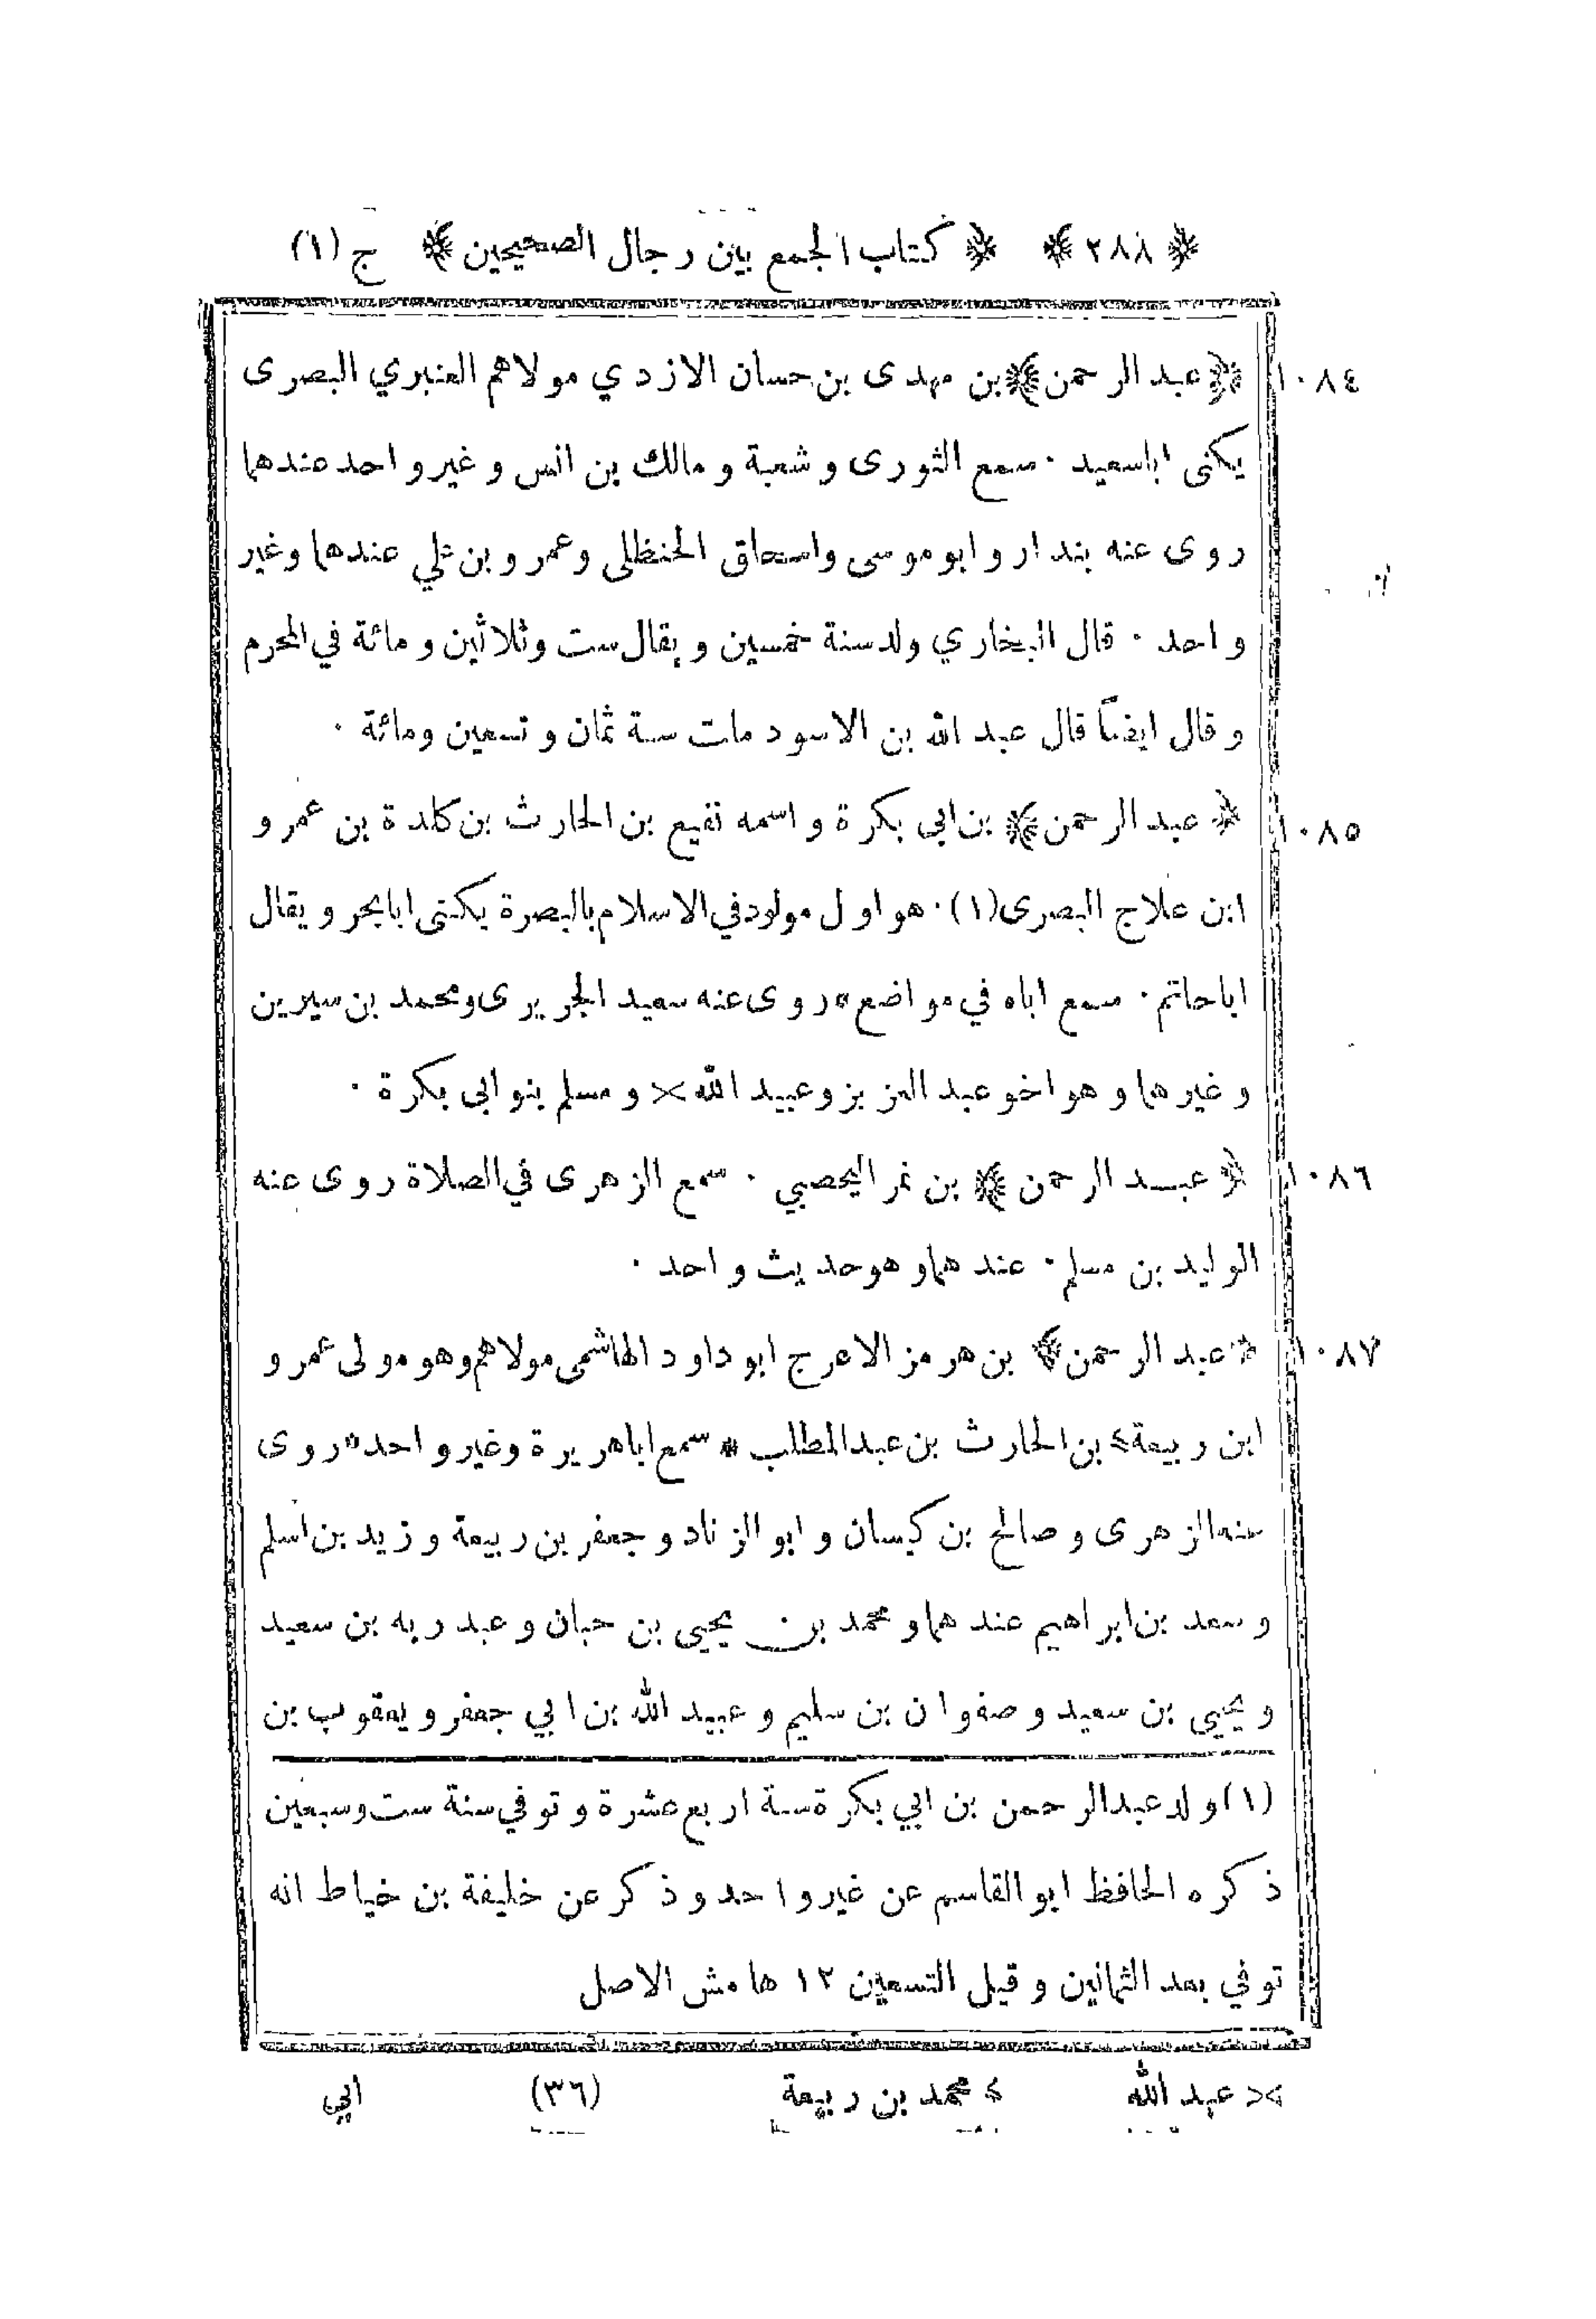 ﴿ ٢٨٨ ﴾ ﴿ كتاب الجمع بين رجال الصحيحين ﴾ ج (١)
١٠٨٤ ﴿عبد الرحمن﴾ بن مهدى بن حسان الازدي مولاهم العنبري البصرى
يكنى اباسعيد ٠ سمع الثورى وشعبة ومالك بن انس وغير واحد عندهما
روى عنه بندار وابوموسى واسحاق الحنظلى وعمرو بن علي عندهما وغير
واحد ٠ قال البخاري ولد سنة خمسين ويقال ست وثلاثين ومائة في المحرم
وقال ايضاً قال عبد الله بن الاسود مات سنة ثمان وتسعين ومائة ٠
١٠٨٥ ﴿ عبد الرحمن ﴾ بن ابى بكرة واسمه نفيع بن الحارث بن كلدة بن عمرو
ابن علاج البصرى (١) ٠ هو اول مولود في الاسلام بالبصرة يكنى ابا بحر ويقال
ابا حاتم ٠ سمع اباه في مواضع * روى عنه سعيد الجريرى ومحمد بن سيرين
وغيرهما وهو اخو عبد العزيز وعبيد الله × ومسلم بنو ابى بكرة ٠
١٠٨٦ ﴿ عبد الرحمن ﴾ بن نمر اليحصبي ٠ سمع الزهرى في الصلاة روى عنه
الوليد بن مسلم ٠ عندهما وهو حديث واحد ٠
١٠٨٧ ﴿ عبد الرحمن ﴾ بن هرمز الاعرج ابو داود الهاشمى مولاهم وهو مولى عمرو
ابن ربيعة ≥ بن الحارث بن عبد المطلب * سمع اباهريرة وغير واحد * روى
عنه الزهرى وصالح بن كيسان وابو الزناد وجعفر بن ربيعة وزيد بن اسلم
وسعد بن ابراهيم عندهما ومحمد بن يحيى بن حبان وعبد ربه بن سعيد
ويحيى بن سعيد وصفوان بن سليم وعبيد الله بن ابي جعفر ويعقوب بن
(١) ولد عبد الرحمن بن ابي بكرة سنة اربع عشرة وتوفي سنة ست وسبعين
ذكره الحافظ ابو القاسم عن غير واحد وذكر عن خليفة بن خياط انه
توفي بعد الثمانين وقبل التسعين ١٢ هامش الاصل
× عبد الله ≥ محمد بن ربيعة (٣٦) ابي